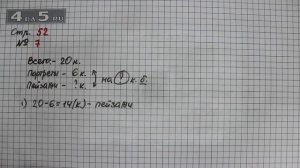 4на5.ru
Стр. 52
№ 7
Всего - 20 к.
Портреты - 6 к.
Пейзажи - ? к.
на ? к. б.
1) 20-6=14(к) - пейзажи